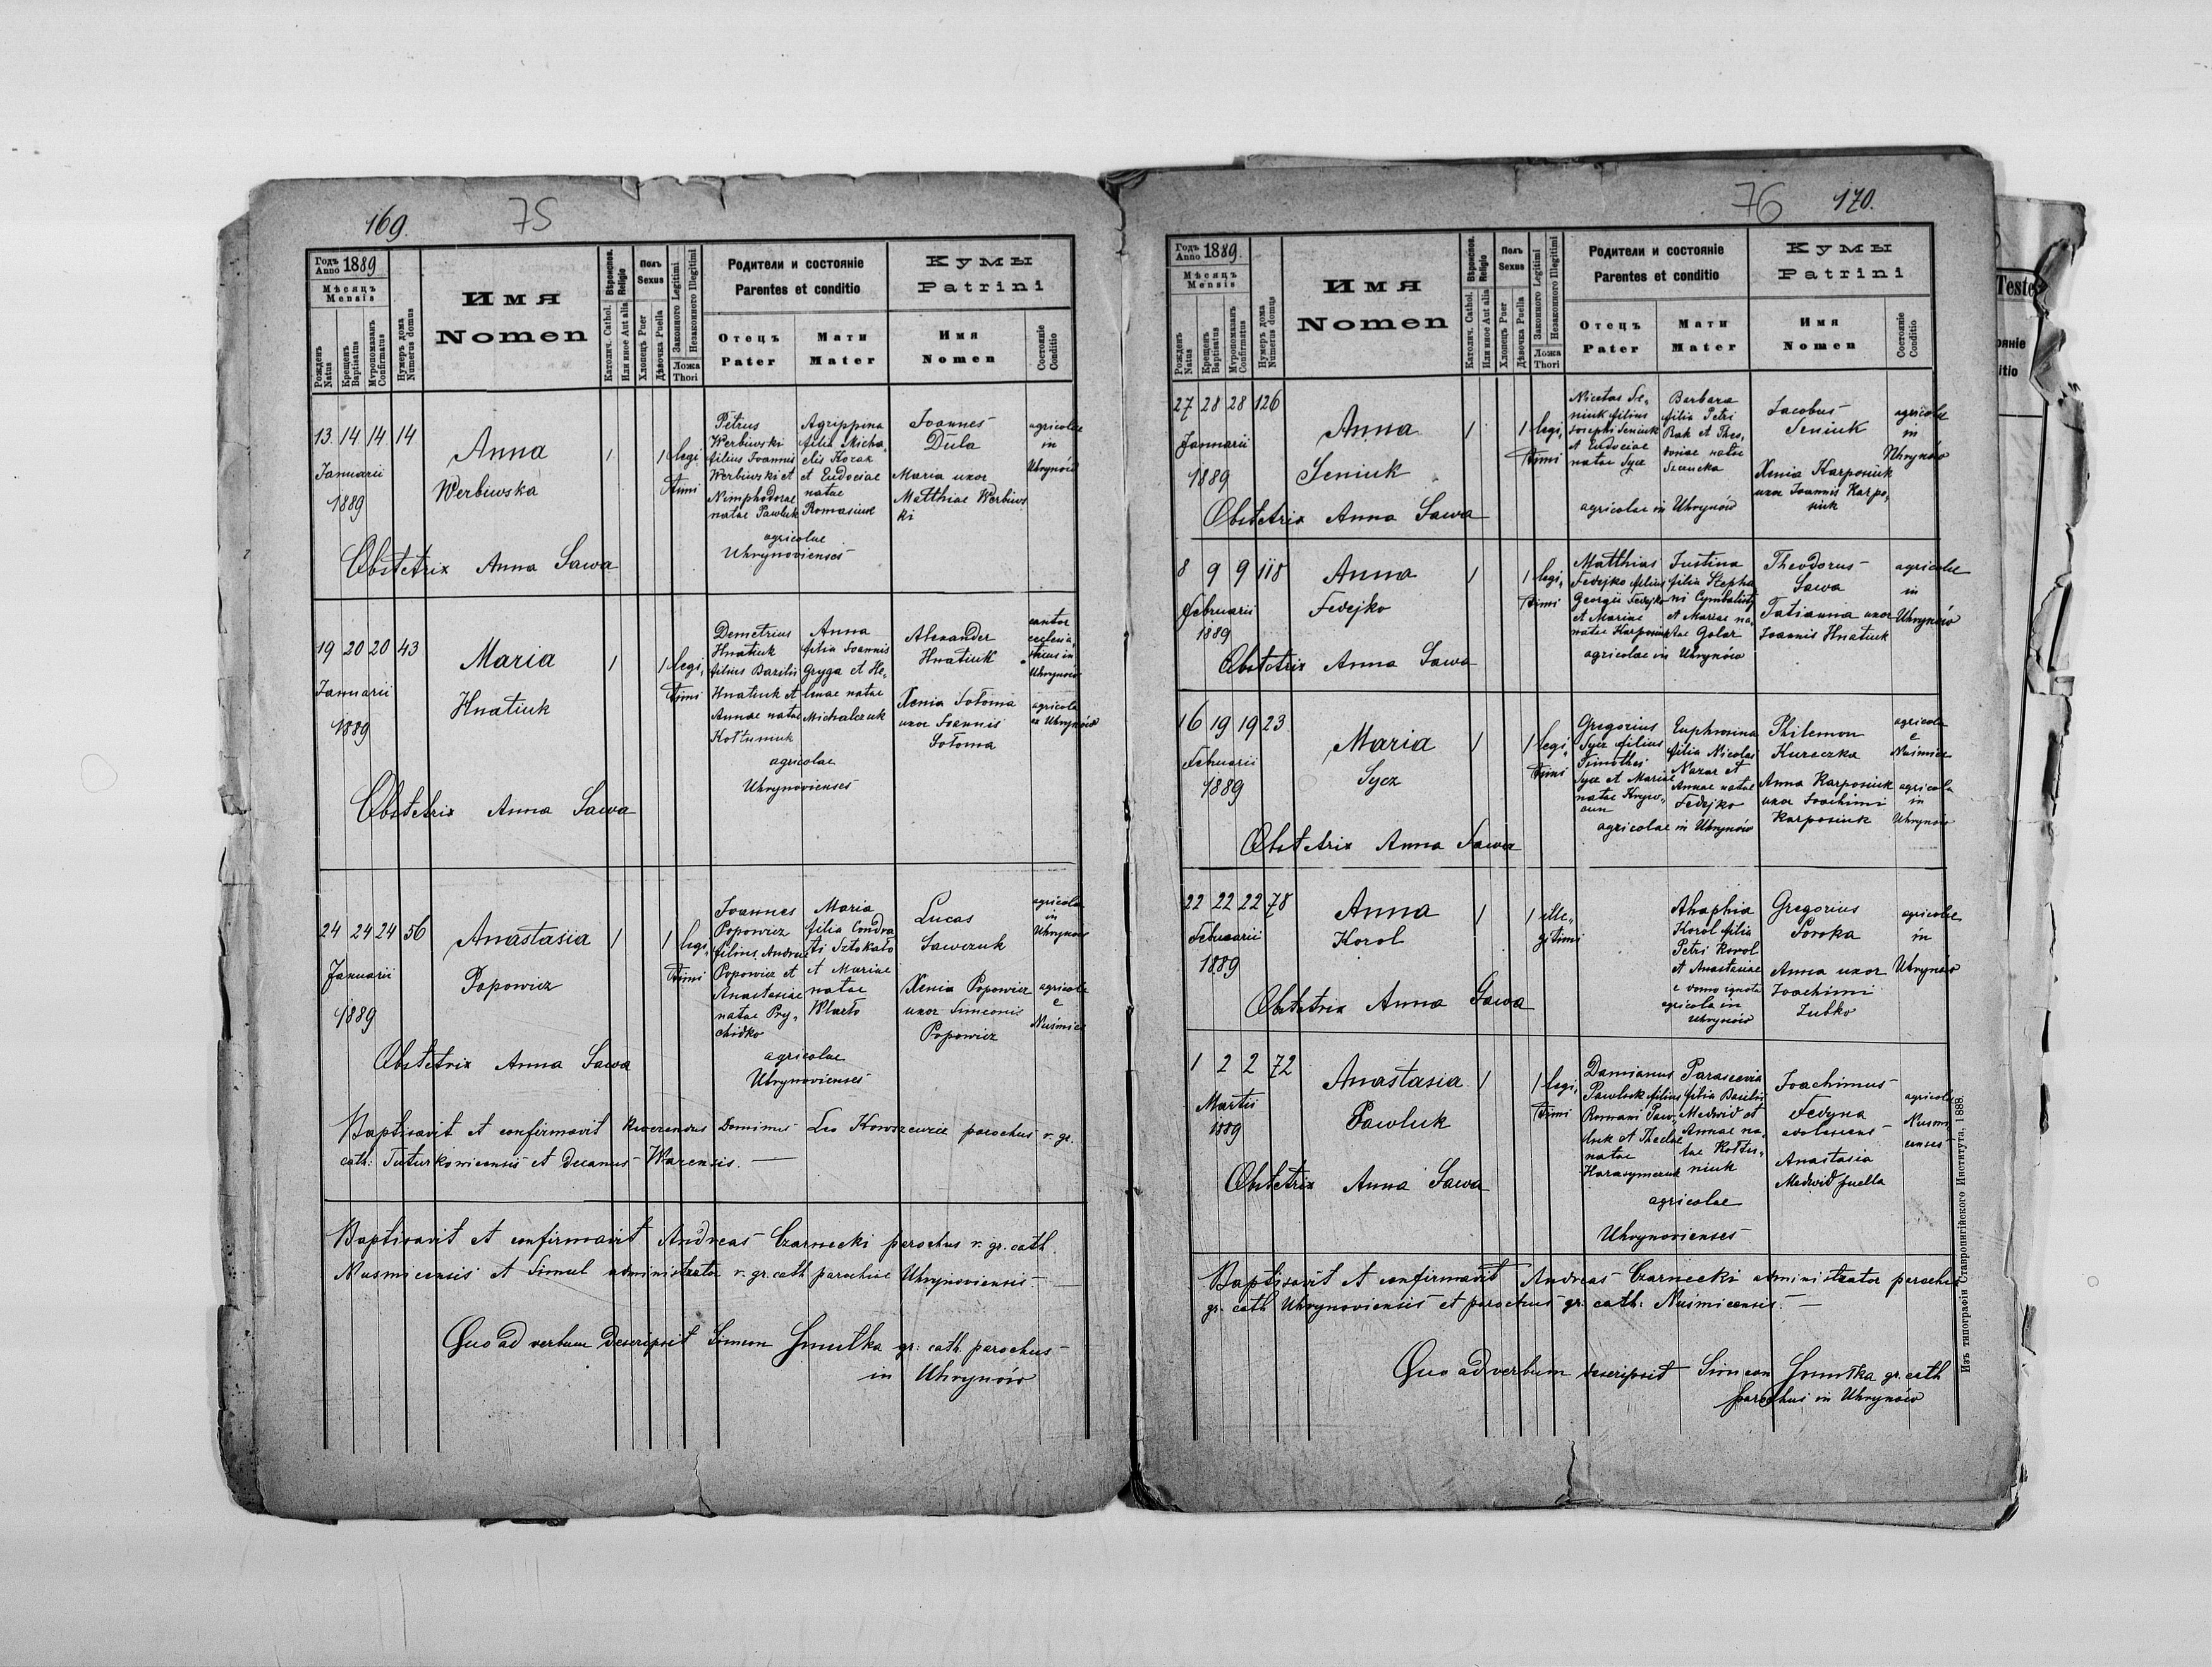 169.
75
Годъ Anno 1889
Мѣсяцъ
Mensis
Рожденъ Natus
Крещенъ Baptisatus
Мѵропомазанъ Confirmatus
Нумеръ дома Numerus domus
Имя
Nomen
Вѣроиспов. Religio
Католич. Cathol.
Или иное Aut alia
Полъ
Sexus
Хлопецъ Puer
Дѣвочка Puella
Законного Legitimi
Незаконного Illegitimi
Ложа
Thori
Родители и состояніе
Parentes et conditio
Отецъ
Pater
Мати
Mater
Кумы
Patrini
Имя
Nomen
Состояніе
Conditio
13. 14 14 14
Januarii
1889
Anna
Werbiwska
1
1
legi,
timi
Petrus
Werbiwski
filius Joannis
Werbiwski et
Nimphodorae
natae Pawluk
Agrippina
filia Micha
elis Kozak
et Eudociae
natae
Romasiuk
agricolae
Uhrynovienses
Joannes
Dula
Maria uxor
Matthiae Werbiws
ki
agricolae
in
Uhrynów
Obstetrix Anna Sawa
19 20 20 43
Januarii
1889
Maria
Hnatiuk
1
1
legi,
timi
Demetrius
Hnatiuk
filius Basilii
Hnatiuk et
Annae natae
Kołtuniuk
Anna
filia Joannis
Gryga et He,
lenae natae
Michalczuk
agricolae
Uhrynovienses
Alexander
Hnatiuk
Xenia Sołoma
uxor Joannis
Sołoma
cantor
ecclesia,
sticus in
Uhrynów
agricola
ex Uhrynów
Obstetrix Anna Sawa
24 24 24 56
Januarii
1889
Anastasia
Popowicz
1
1
legi,
timi
Joannes
Popowicz
filius Andreae
Popowicz et
Anastasiae
natae Pry,
chidko
Maria
filia Condra
ti Sztokało
et Mariae
natae
agricolae
Uhrynovienses
Lucas
Sawczuk
Xenia Popowicz
uxor Simeonis
Popowicz
agricola
in
Uhrynów
agricola
e
Nuśmice
Obstetrix Anna Sawa
Baptisavit et confirmavit Reverendus Dominus Leo Kowszewicz parochus r. gr.
cath: Tuturkoviensis et Decanus Warensis. —
Baptisavit et confirmavit Andreas Czarnecki parochus r. gr. cath.
Nusmicensis et simul administrator r. gr. cath parochiae Uhrynoviensis. —
Quo ad verbum descripsit Simeon Smułka gr: cath. parochus
in Uhrynów
76
170.
Годъ Anno 1889.
Мѣсяцъ
Mensis
Рожденъ Natus
Крещенъ Baptisatus
Мѵропомазанъ Confirmatus
Нумеръ дома Numerus domus
Имя
Nomen
Вѣроиспов. Religio
Католич. Cathol.
Или иное Aut alia
Полъ
Sexus
Хлопецъ Puer
Дѣвочка Puella
Законного Legitimi
Незаконного Illegitimi
Ложа
Thori
Родители и состояніе
Parentes et conditio
Отецъ
Pater
Мати
Mater
Кумы
Patrini
Имя
Nomen
Состояніе
Conditio
27 28 28 126
Januarii
1889
Anna
Seniuk
1
1
legi,
timi
Nicetas Se,
niuk filius
Josephi Seniuk
et Eudociae
natae Sycz
Barbara
filia Petri
Bak et Theo,
dosiae natae
agricolae in Uhrynów
Jacobus
Seniuk
Xenia Karposiuk
uxor Joannis Karpo,
siuk
agricolae
in
Uhrynów
Obstetrix Anna Sawa
8 9 9 118
Februarii
1889
Anna
Fedejko
1
1
legi,
timi
Matthias
Fedejko filius
Georgii Fedejko
et Mariae
natae Karposiuk
Justina
filia Stepha
ni Cymbalisty
et Mariae na,
tae Golar
agricolae in Uhrynów
Theodorus
Sawa
Tatianna uxor
Joannis Hnatiuk
agricolae
in
Uhrynów
Obstetrix Anna Sawa
16 19 19 23
Februarii
1889
Maria
Sycz
1
1
legi,
timi
Gregorius
Sycz filius
Timothei
Sycz et Mariae
natae Krywo,
Euphrosina
filia Nicolai
Nazar et
Annae natae
Fedejko
agricolae in Uhrynów
Philemon
Kureczka
Anna Karposiuk
uxor Joachimi
Karposiuk
agricola
e
Nuśmice
agricola
in
Uhrynów
Obstetrix Anna Sawa
22 22 22 78
Februarii
1889
Anna
Korol
1
1
ille,
gitimi
Ahaphia
Korol filia
Petri Korol
et Anastasiae
e domo ignota
agricola in
Uhrynów
Gregorius
Soroka
Anna uxor
Joachimi
Zubko
agricolae
in
Uhrynów
Obstetrix Anna Sawa
1 2 2 72
Martii
1889
Anastasia
Pawluk
1
1
legi,
timi
Damianus
Pawluk filius
Romani Paw,
luk et Theclae
natae
Harasymczuk
Parascevia
filia Basilii
Medwid et
Annae na,
tae Kołtu,
niuk
agricolae
Uhrynovienses
Joachimus
Fedyna
adolescens
Anastasia
Medwid puella
agricolae
Nusmi
censes
Obstetrix Anna Sawa
Baptisavit et confirmavit Andreas Czarnecki administrator parochus
gr. cath Uhrynoviensis et parochus gr. cath: Nuśmicensis. —
Quo ad verbum descripsit Simeon Smułka gr. cath
parochus in Uhrynów
Изъ типографіи Ставропигійского Института, 1888.
Teste